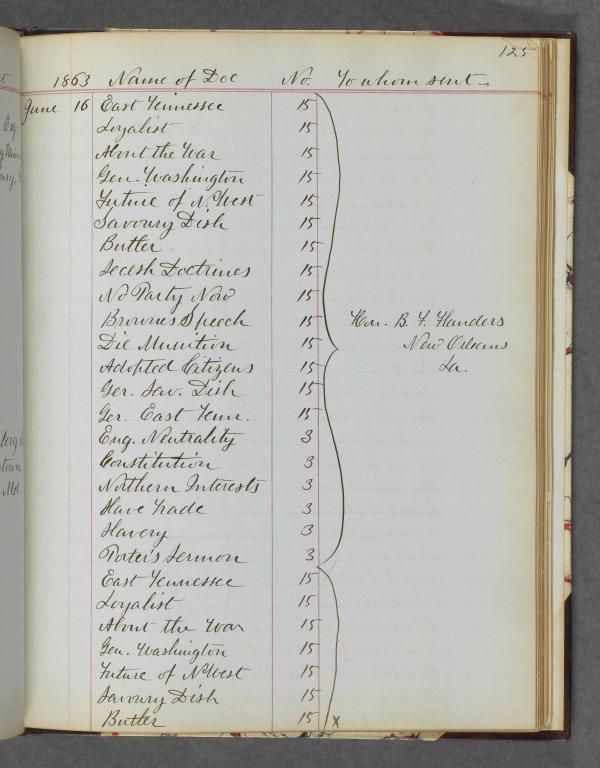 125
1863 Name of Doc No. To whom sent
June 16 East Tennessee 15
Loyalist 15
About the War 15
Gen. Washington 15
Future of N. West 15
Savoury Dish 15
Butler 15
Secesh Doctrines 15
No Party Now 15
Browne's Speech 15 Hon. B. F. Flanders
Die Munition 15 New Orleans
Adopted Citizens 15 La.
Ger. Sav. Dish 15
Ger. East Tenn. 15
Eng. Neutrality 3
Constitution 3
Northern Interests 3
Slave Trade 3
Slavery 3
Porter's Sermon 3
East Tennessee 15
Loyalist 15
About the War 15
Gen. Washington 15
Future of N West 15
Savoury Dish 15
Butler 15 x